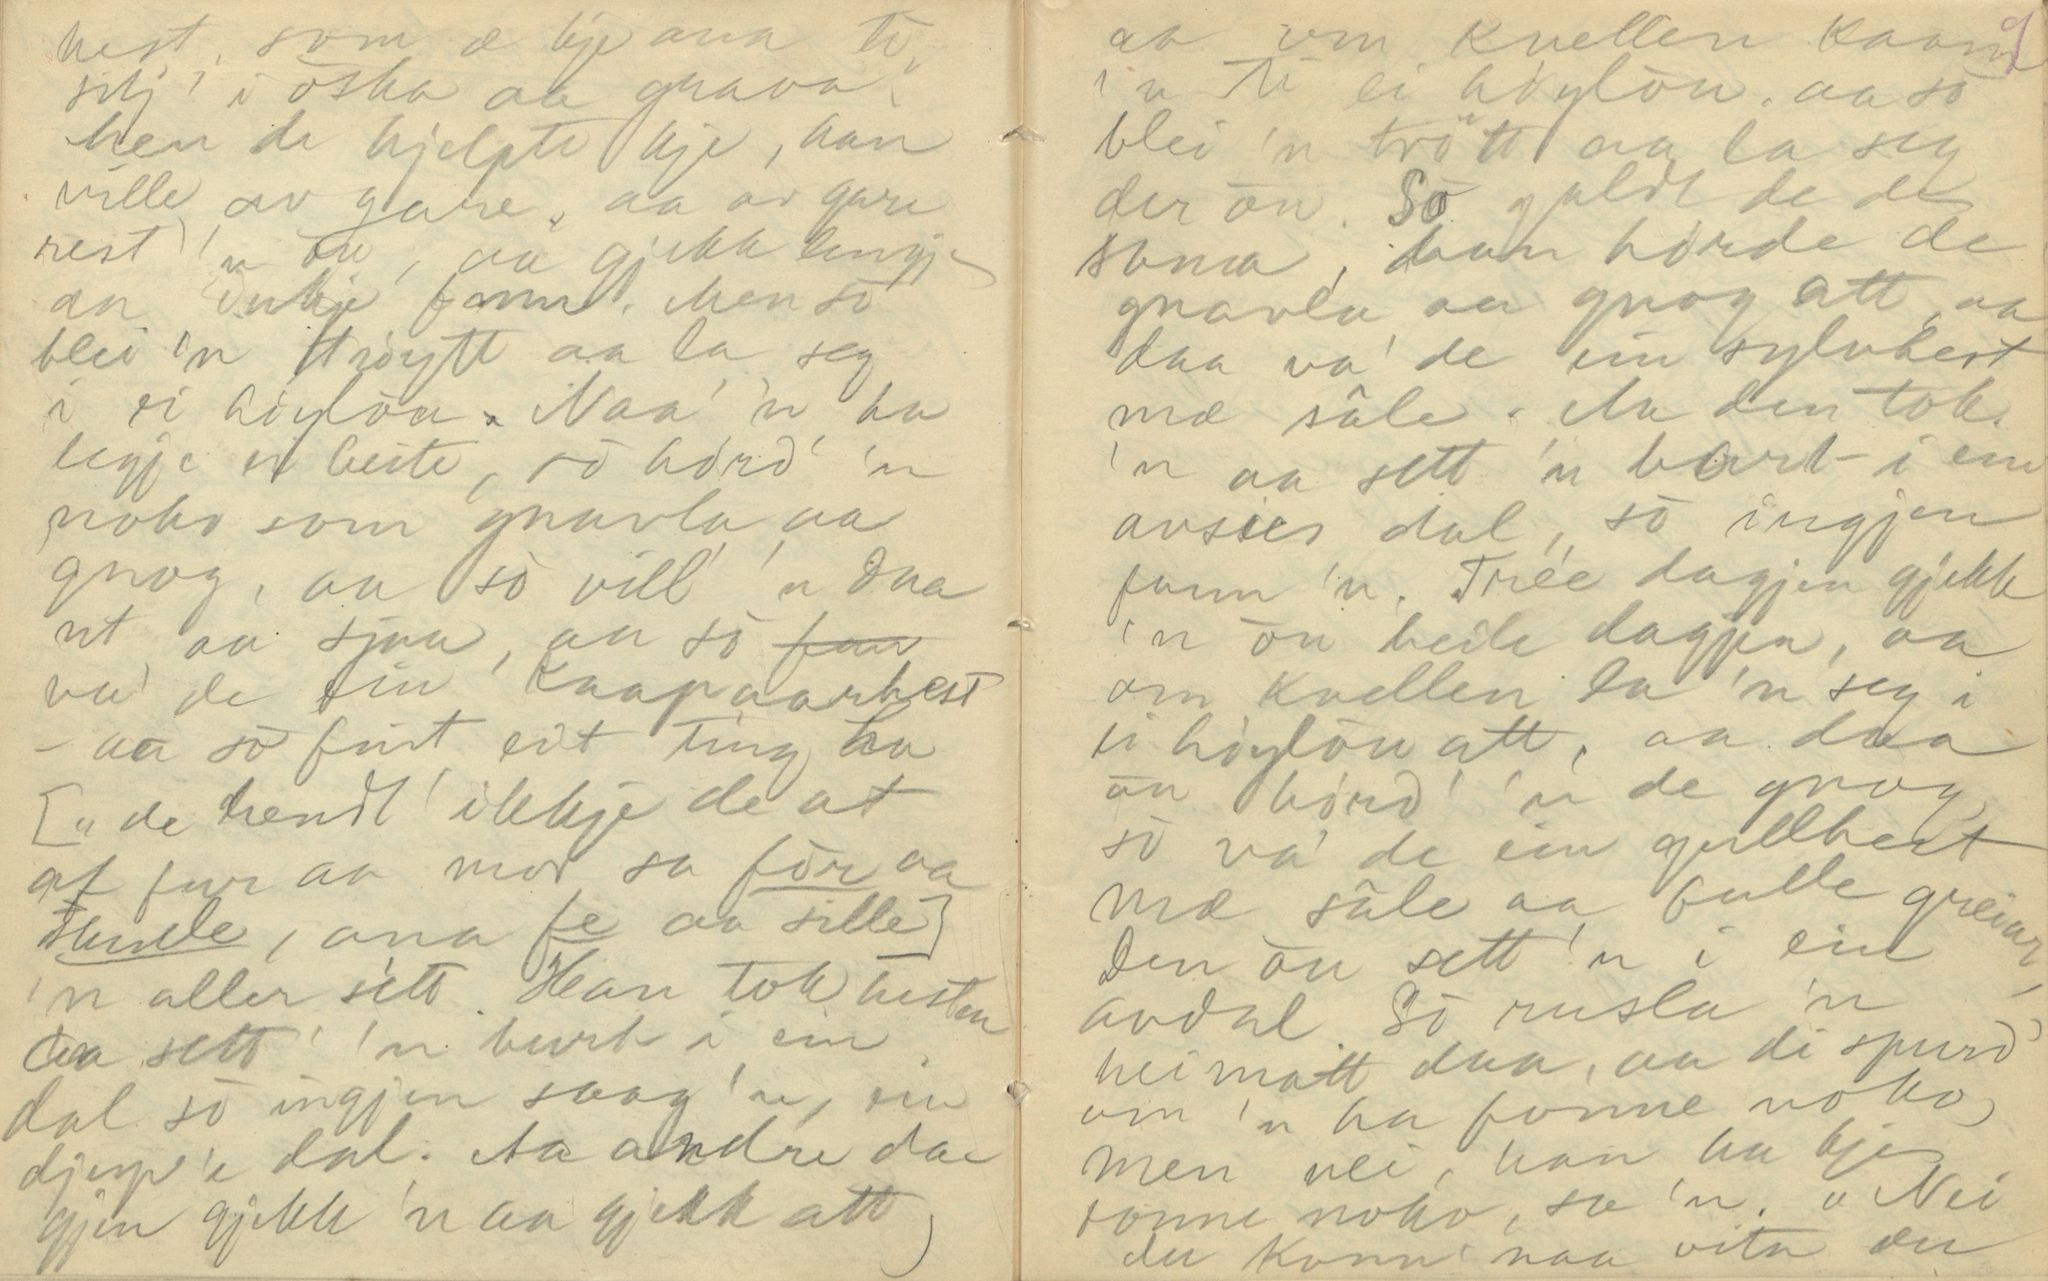 hest, som æ kje ana ti
sitj' i oska aa grava".
Men de hjelpte kje, han
ville av gare. aa av gare
rest' 'n òu, aa gjekk lengje
aa inkje fann. Men sò
blei 'n trøytt aa la seg
i ei høylòu. Naa 'n ha
legje ei beite, sò hørd' 'n
noko som gnavla aa
gnog, aa sò vill' 'n daa
ut aa sjaa, aa sò fan
va' de ein Kaaparhest
– aa sò fint eit ting ha
["de hendt' ikkje de at
at far aa mor sa fòr aa
skulle, ana fe aa sille]
'n aller sètt. Han tok hesten
aa sett' 'n burt i ein
dal sò ingjen saag 'n, ein
djup'e dal. Aa andre da-
gjen gjekk 'n aa gjekk att,
9
aa um Kvellen Kaam
'n ti ei høylòu. aa sò
blei 'n trøtt aa la seg
der òu. Sò galdt de de
sama, han hørde de
gnavla aa gnog att, aa
daa va' de ein sylvhest
mæ sâle. Aa den tok
'n aa sett 'n burt i ein
avsies dal, sò ingjen
fann 'n. Trée dagjen gjekk
'n òu heile dagjen, aa
om Kvellen la 'n seg i
ei høylòu att, aa daa
òu hørd' 'n de gnog,
sò va' de ein gullhest
mæ sâle aa fulle greiur,
Den òu sett 'n i ein
avdal. Sò rusla 'n
heimatt daa, aa di spurd'
um 'n ha fonne noko,
men nei, han ha kje
fonne noko, sa 'n. "Nei
du Konn' naa vita du